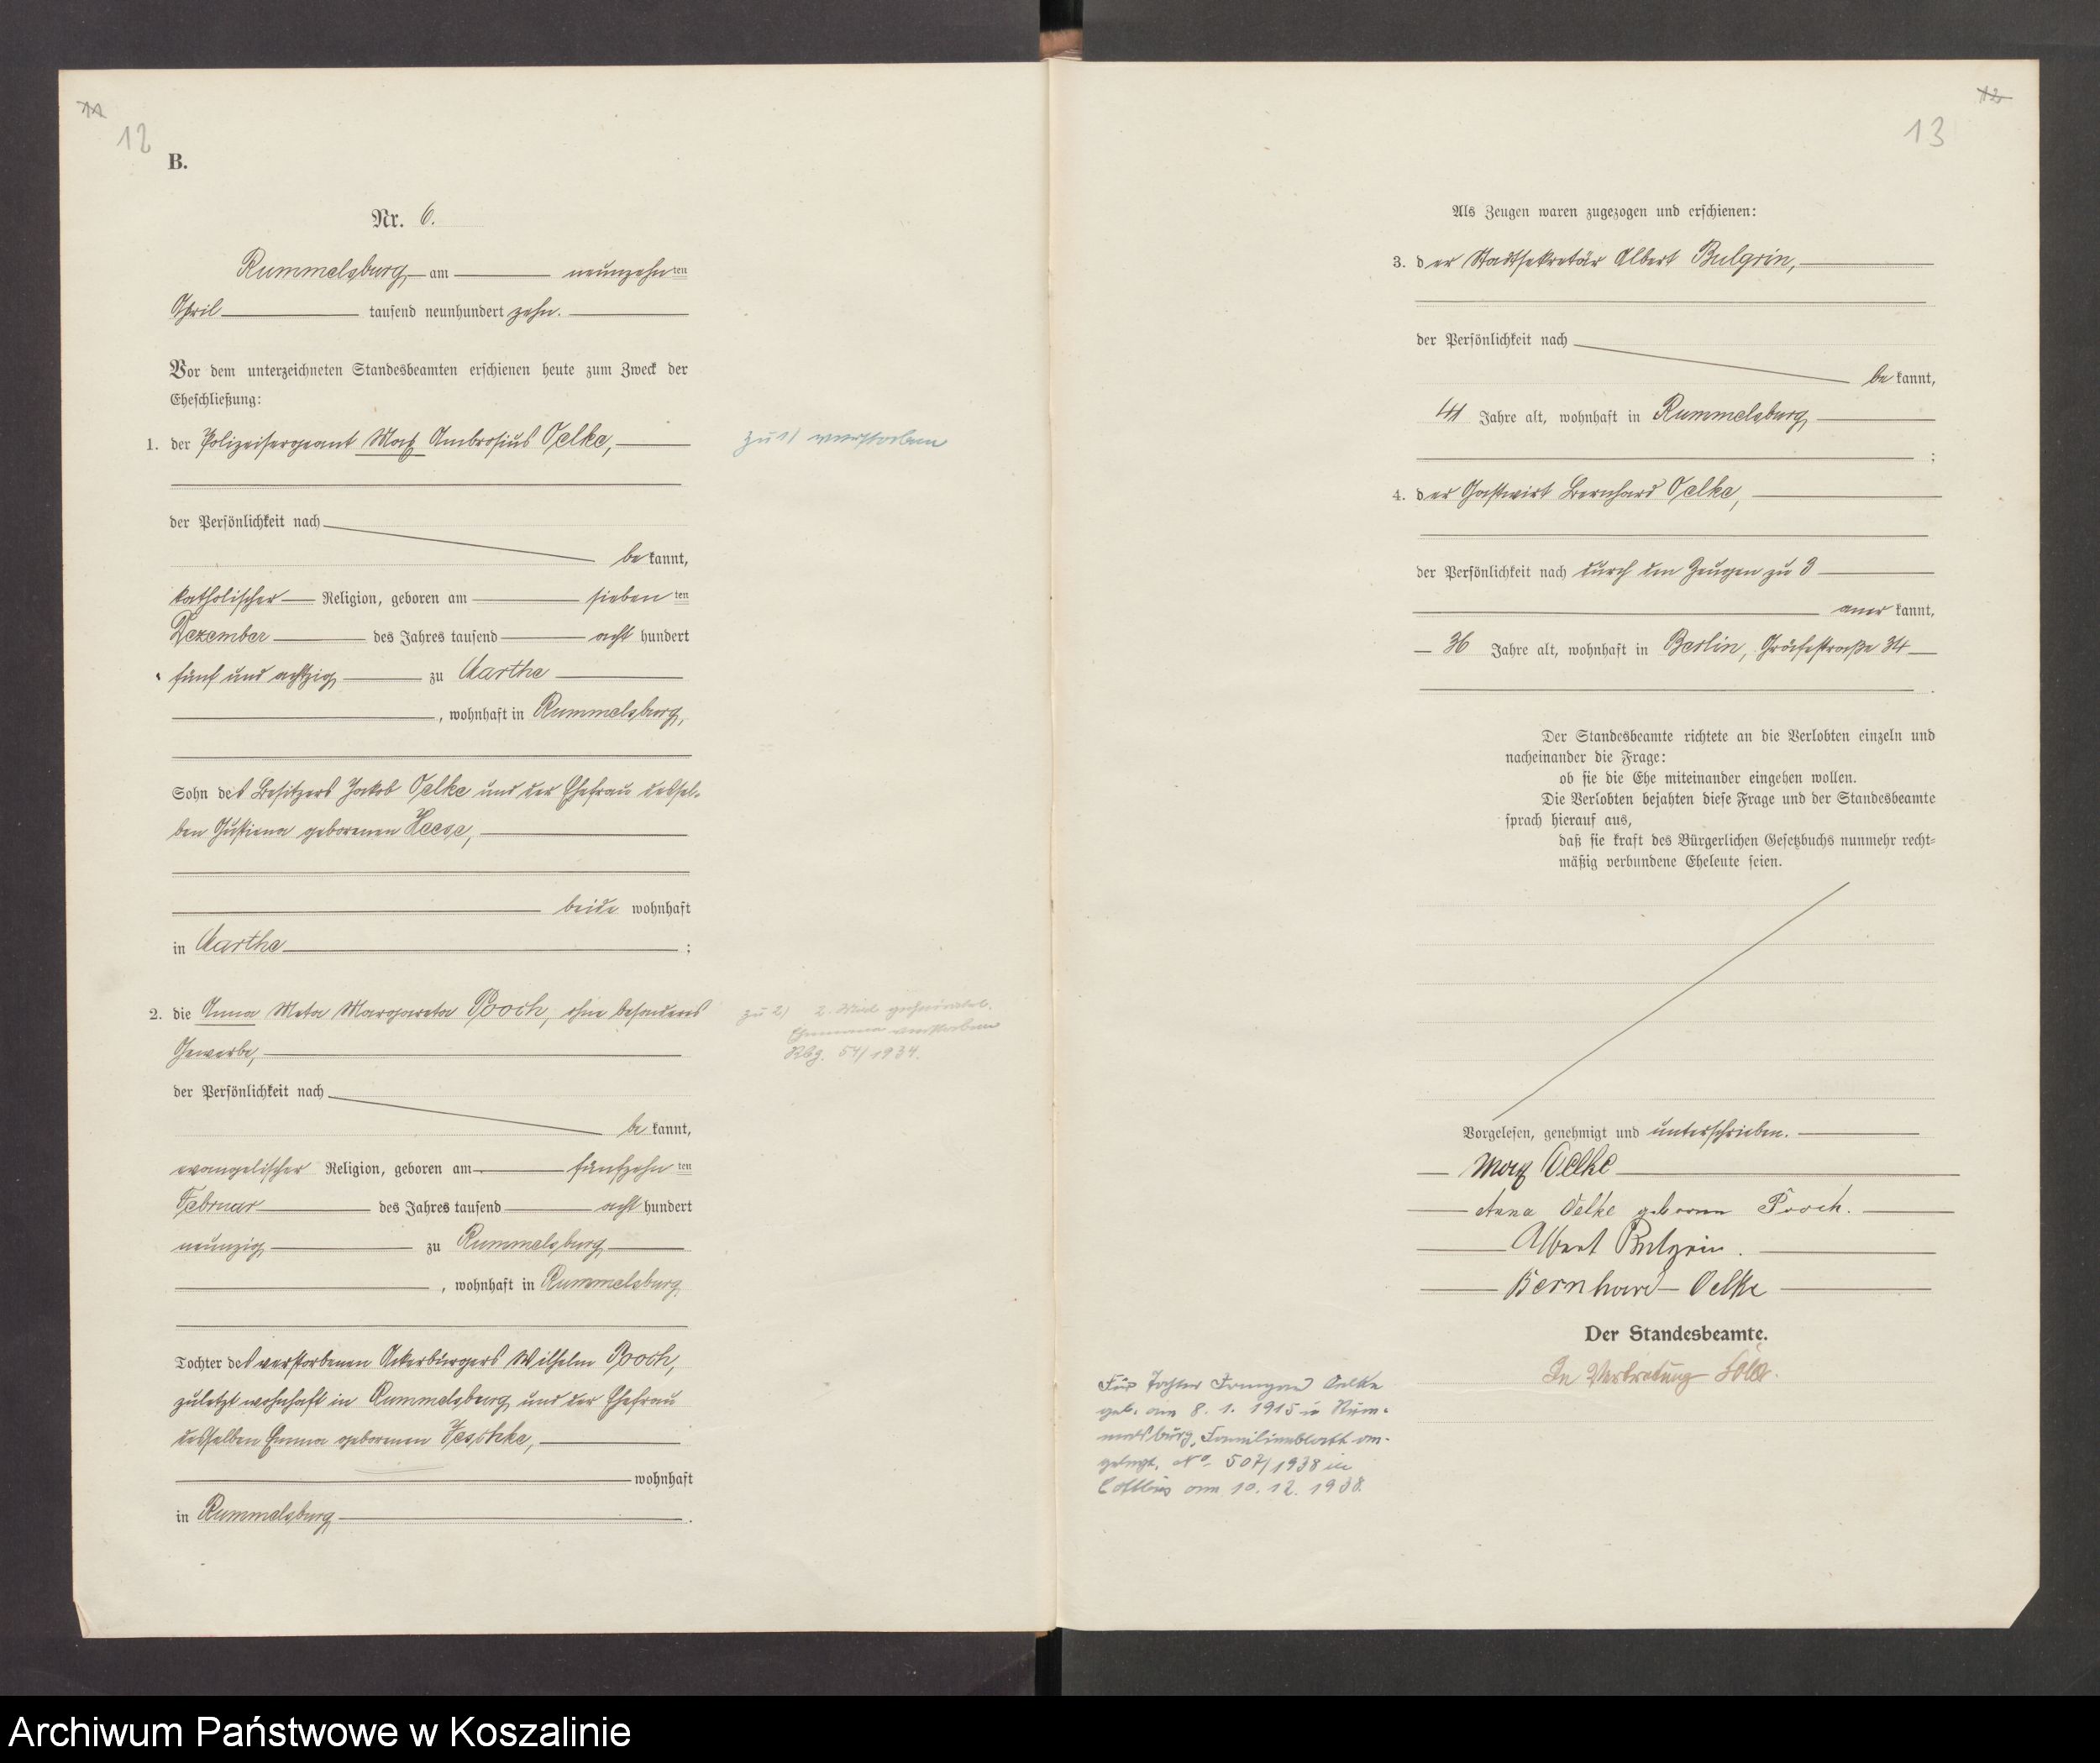 12
B.
Nr. 6.
Rummelsburg, am neunzehnten
April tausend neunhundert zehn.
Vor dem unterzeichneten Standesbeamten erschienen heute zum Zweck der
Eheschließung:
1. der Polizeisergeant Max Ambrosius Oelke,
zu 1) verstorben
der Persönlichkeit nach
bekannt,
katholischer Religion, geboren am siebenten
Dezember des Jahres tausend acht hundert
fünf und achtzig zu Aarthe
, wohnhaft in Rummelsburg,
Sohn des Besitzers Jakob Oelke und der Ehefrau dessel-
ben Justiena geborenen Heese,
beide wohnhaft
in Aarthe ;
2. die Anna Meta Margareta Pooch, ohne besonderes
Gewerbe,
zu 2) 2. Mal geheiratet.
Ehemann verstorben
Rbg. 54/1934.
der Persönlichkeit nach
bekannt,
evangelischer Religion, geboren am fünfzehnten
Februar des Jahres tausend acht hundert
neunzig zu Rummelsburg
, wohnhaft in Rummelsburg,
Tochter des verstorbenen Ackerbürgers Wilhelm Pooch,
zuletzt wohnhaft in Rummelsburg und der Ehefrau
desselben Emma geborenen Jeschke,
wohnhaft
in Rummelsburg .
12
13
Als Zeugen waren zugezogen und erschienen:
3. der Stadtsekretär Albert Bulgrin,
der Persönlichkeit nach
bekannt,
41 Jahre alt, wohnhaft in Rummelsburg
;
4. der Gastwirt Bernhard Oelke,
der Persönlichkeit nach durch den Zeugen zu 3
anerkannt,
36 Jahre alt, wohnhaft in Berlin, Gräfestraße 34
.
Der Standesbeamte richtete an die Verlobten einzeln und
nacheinander die Frage:
ob sie die Ehe miteinander eingehen wollen.
Die Verlobten bejahten diese Frage und der Standesbeamte
sprach hierauf aus,
daß sie kraft des Bürgerlichen Gesetzbuchs nunmehr recht-
mäßig verbundene Eheleute seien.
Vorgelesen, genehmigt und unterschrieben.
Max Oelke
Anna Oelke geborene Pooch.
Albert Bulgrin.
Bernhard Oelke
Der Standesbeamte.
In Vertretung
Für Tochter Irmgard Oelke
geb. am 8. 1. 1915 in Rum-
melsburg, Familienblatt an-
gelegt. No 507/1938 in
Cottbus am 10. 12. 1938.
Archiwum Państwowe w Koszalinie